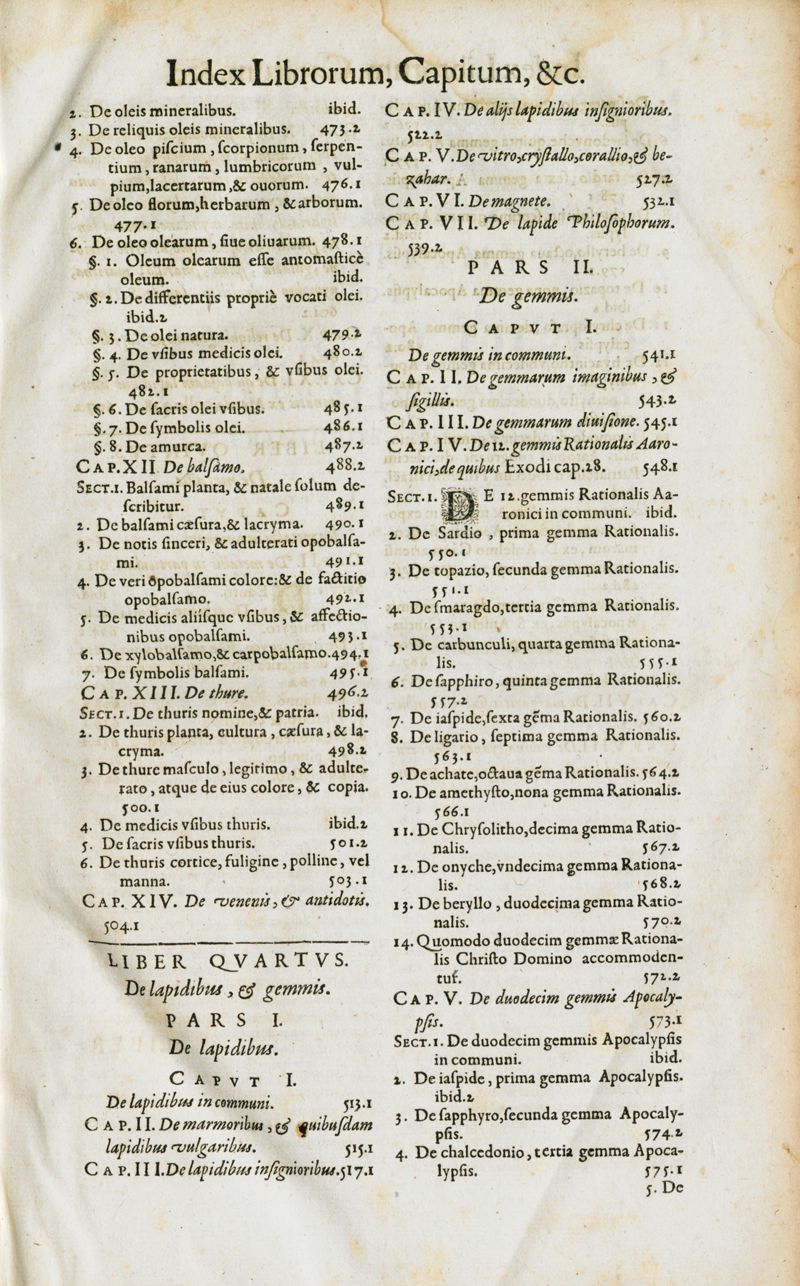 Index Librorum, Capitum, &c.
2. De oleis mineralibus. ibid.
3. De reliquis oleis mineralibus. 473.2
4. De oleo piſcium, ſcorpionum, ſerpen-
tium, ranarum, lumbricorum, vul-
pium, lacertarum, & ouorum. 476.1
5. De oleo florum, herbarum, & arborum.
477.1
6. De oleo olearum, ſiue oliuarum. 478.1
§. 1. Oleum olearum eſſe antomaſticè
oleum. ibid.
§. 2. De differentiis propriè vocati olei.
ibid.2
§. 3. De olei natura. 479.2
§. 4. De vſibus medicis olei. 480.2
§. 5. De proprietatibus, & vſibus olei.
482.1
§. 6. De ſacris olei vſibus. 485.1
§. 7. De ſymbolis olei. 486.1
§. 8. De amurca. 487.2
CAP. XII De balſamo. 488.2
SECT. 1. Balſami planta, & natale ſolum de-
ſcribitur. 489.1
2. De balſami cæſura, & lacryma. 490.1
3. De notis ſinceri, & adulterati opobalſa-
mi. 491.1
4. De veri opobalſami colore: & de factitio
opobalſamo. 492.1
5. De medicis aliiſque vſibus, & affectio-
nibus opobalſami. 493.1
6. De xylobalſamo, & carpobalſamo. 494.1
7. De ſymbolis balſami. 495.1
CAP. XIII. De thure. 496.2
SECT. 1. De thuris nomine, & patria. ibid.
2. De thuris planta, cultura, cæſura, & la-
cryma. 498.2
3. De thure maſculo, legitimo, & adulte-
rato, atque de eius colore, & copia.
500.1
4. De medicis vſibus thuris. ibid.2
5. De ſacris vſibus thuris. 501.2
6. De thuris cortice, fuligine, polline, vel
manna. 503.1
CAP. XIV. De venenis, & antidotis.
504.1
LIBER QVARTVS.
De lapidibus, & gemmis.
PARS I.
De lapidibus.
CAPVT I.
De lapidibus in communi. 513.1
CAP. II. De marmoribus, & quibuſdam
lapidibus vulgaribus. 515.1
CAP. III. De lapidibus inſignioribus. 517.1
CAP. IV. De alijs lapidibus inſignioribus.
522.2
CAP. V. De vitro, cryſtallo, corallio, & be-
zahar. 527.2
CAP. VI. De magnete. 532.1
CAP. VII. De lapide Philoſophorum.
539.2
PARS II.
De gemmis.
CAPVT I.
De gemmis in communi. 541.1
CAP. II. De gemmarum imaginibus, &
ſigillis. 543.2
CAP. III. De gemmarum diuiſione. 545.1
CAP. IV. De 12. gemmis Rationalis Aaro-
nici, de quibus Exodi cap. 28. 548.1
SECT. 1. DE 12. gemmis Rationalis Aa-
ronici in communi. ibid.
2. De Sardio, prima gemma Rationalis.
550.1
3. De topazio, ſecunda gemma Rationalis.
551.1
4. De ſmaragdo, tertia gemma Rationalis.
553.1
5. De carbunculi, quarta gemma Rationa-
lis. 555.1
6. De ſapphiro, quinta gemma Rationalis.
557.2
7. De iaſpide, ſexta gẽma Rationalis. 560.2
8. De ligario, ſeptima gemma Rationalis.
563.1
9. De achate, octaua gẽma Rationalis. 564.2
10. De amethyſto, nona gemma Rationalis.
566.1
11. De Chryſolitho, decima gemma Ratio-
nalis. 567.2
12. De onyche, vndecima gemma Rationa-
lis. 568.2
13. De beryllo, duodecima gemma Ratio-
nalis. 570.2
14. Quomodo duodecim gemmæ Rationa-
lis Chriſto Domino accommoden-
tur. 572.2
CAP. V. De duodecim gemmis Apocaly-
pſis. 573.1
SECT. 1. De duodecim gemmis Apocalypſis
in communi. ibid.
2. De iaſpide, prima gemma Apocalypſis.
ibid.2
3. De ſapphyro, ſecunda gemma Apocaly-
pſis. 574.2
4. De chalcedonio, tertia gemma Apoca-
lypſis. 575.1
5. De